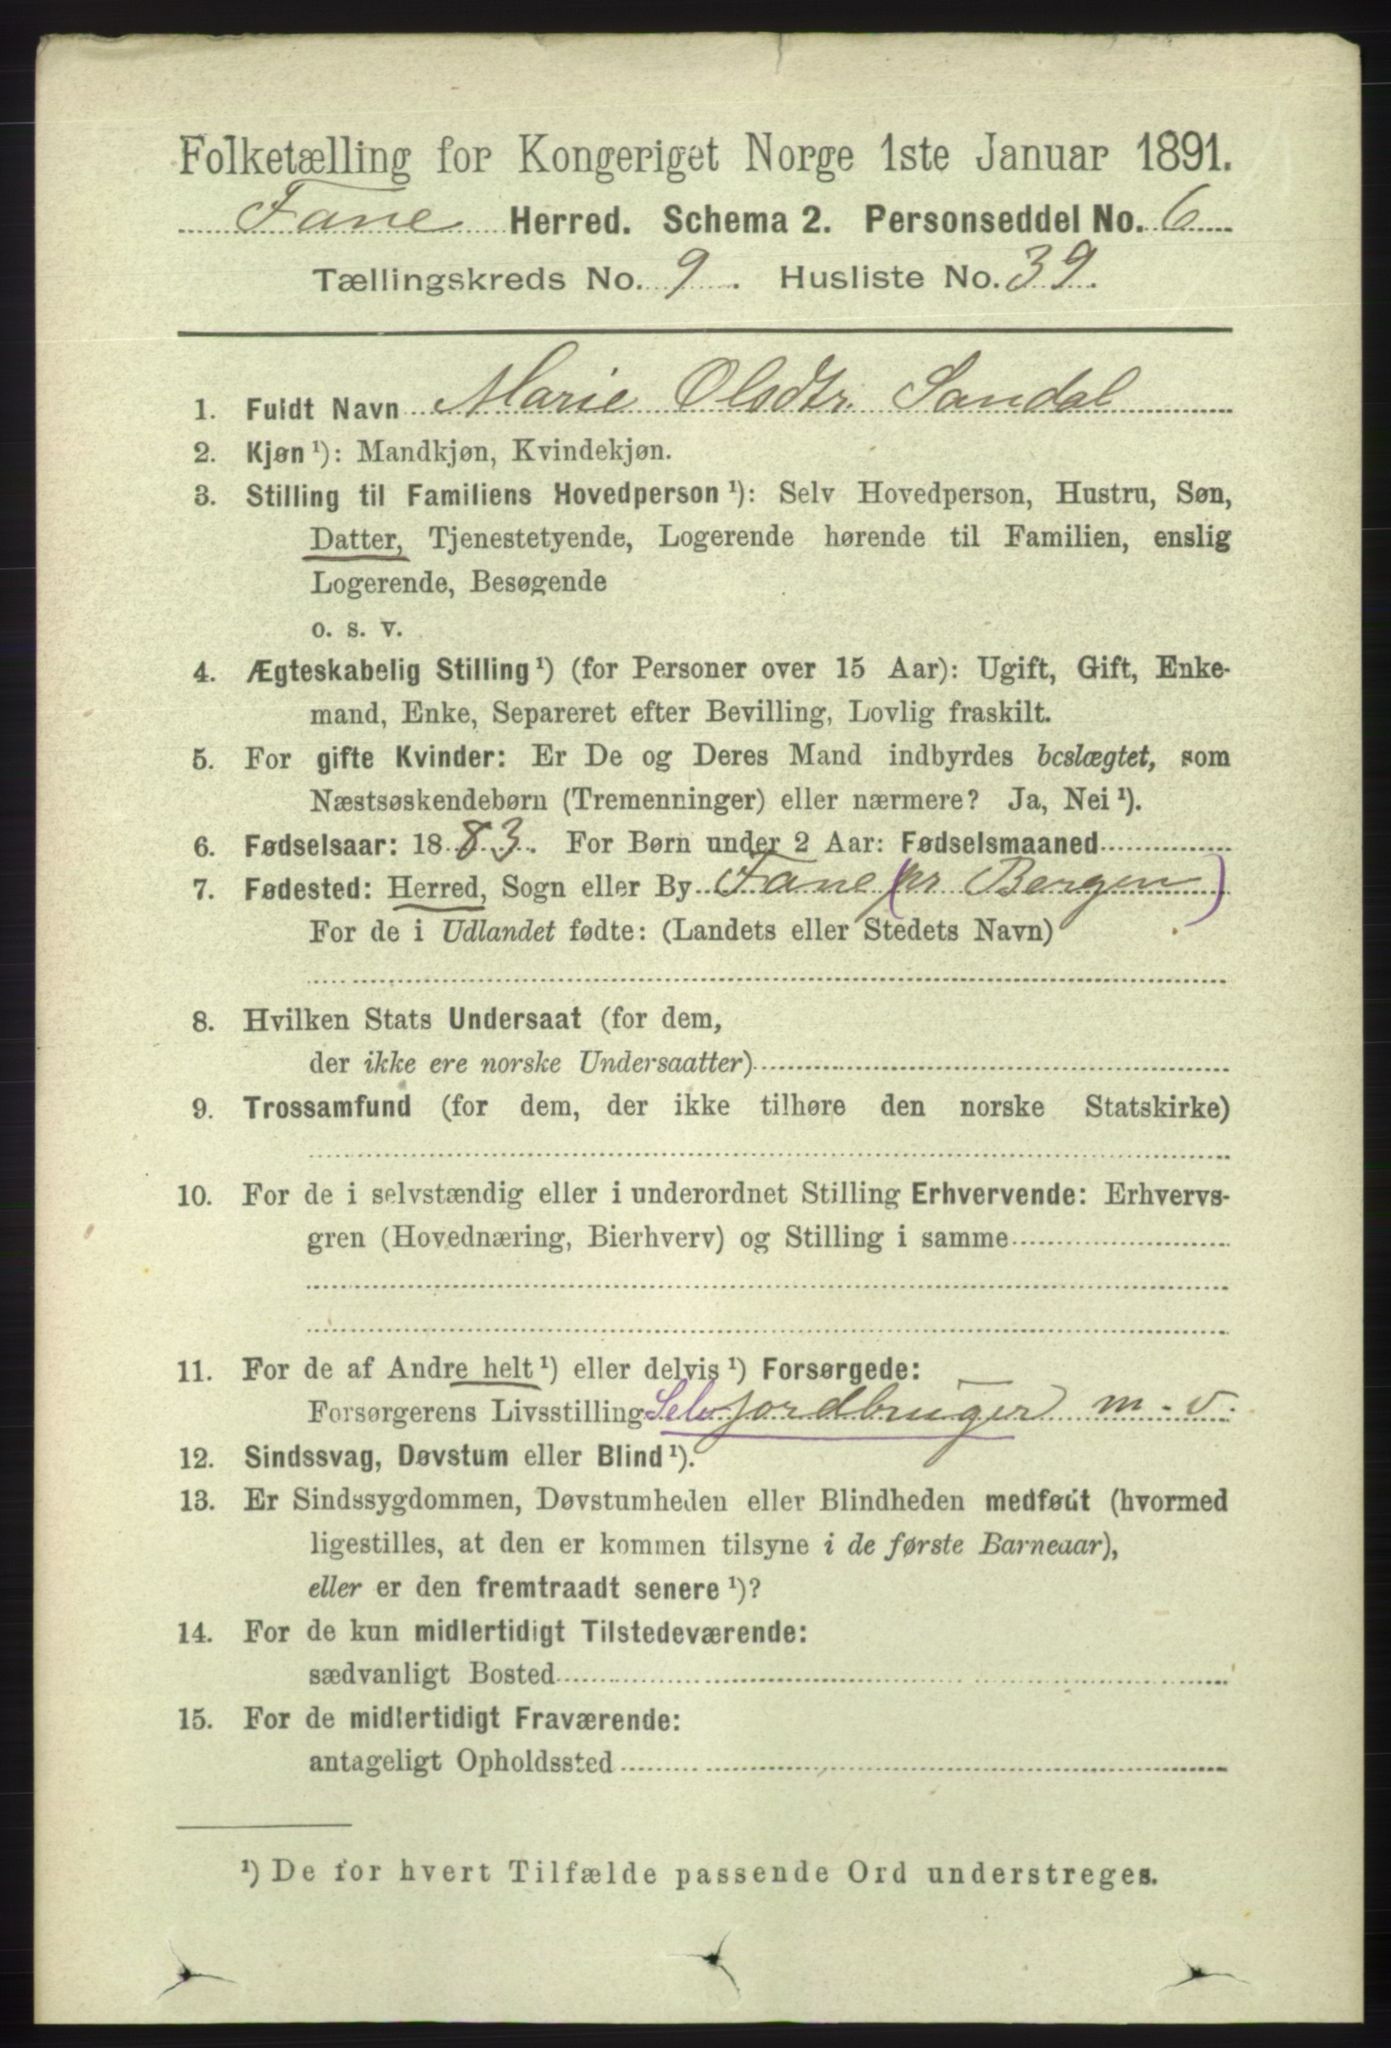 Folketælling for Kongeriget Norge 1ste Januar 1891.
Fane Herred. Schema 2. Personseddel No. 6
Tællingskreds No. 9. Husliste No. 39.
1. Fuldt Navn Marie Olsdtr. Sandal
2. Kjøn ¹): Mandkjøn, Kvindekjøn.
3. Stilling til Familiens Hovedperson ¹): Selv Hovedperson, Hustru, Søn,
Datter, Tjenestetyende, Logerende hørende til Familien, enslig
Logerende, Besøgende
o. s. v.
4. Ægteskabelig Stilling ¹) (for Personer over 15 Aar): Ugift, Gift, Enke-
mand, Enke, Separeret efter Bevilling, Lovlig fraskilt.
5. For gifte Kvinder: Er De og Deres Mand indbyrdes beslægtet, som
Næstsøskendebørn (Tremenninger) eller nærmere? Ja, Nei ¹).
6. Fødselsaar: 1883. For Børn under 2 Aar: Fødselsmaaned
7. Fødested: Herred, Sogn eller By Fane (pr Bergen)
For de i Udlandet fødte: (Landets eller Stedets Navn)
8. Hvilken Stats Undersaat (for dem,
der ikke ere norske Undersaatter)
9. Trossamfund (for dem, der ikke tilhøre den norske Statskirke)
10. For de i selvstændig eller i underordnet Stilling Erhvervende: Erhvervs-
gren (Hovednæring, Bierhverv) og Stilling i samme
11. For de af Andre helt ¹) eller delvis ¹) Forsørgede:
Forsørgerens Livsstilling Selv jordbruger m. v.
12. Sindssvag, Døvstum eller Blind ¹).
13. Er Sindssygdommen, Døvstumheden eller Blindheden medfødt (hvormed
ligestilles, at den er kommen tilsyne i de første Barneaar),
eller er den fremtraadt senere ¹)?
14. For de kun midlertidigt Tilstedeværende:
sædvanligt Bosted
15. For de midlertidigt Fraværende:
antageligt Opholdssted
¹) De for hvert Tilfælde passende Ord understreges.